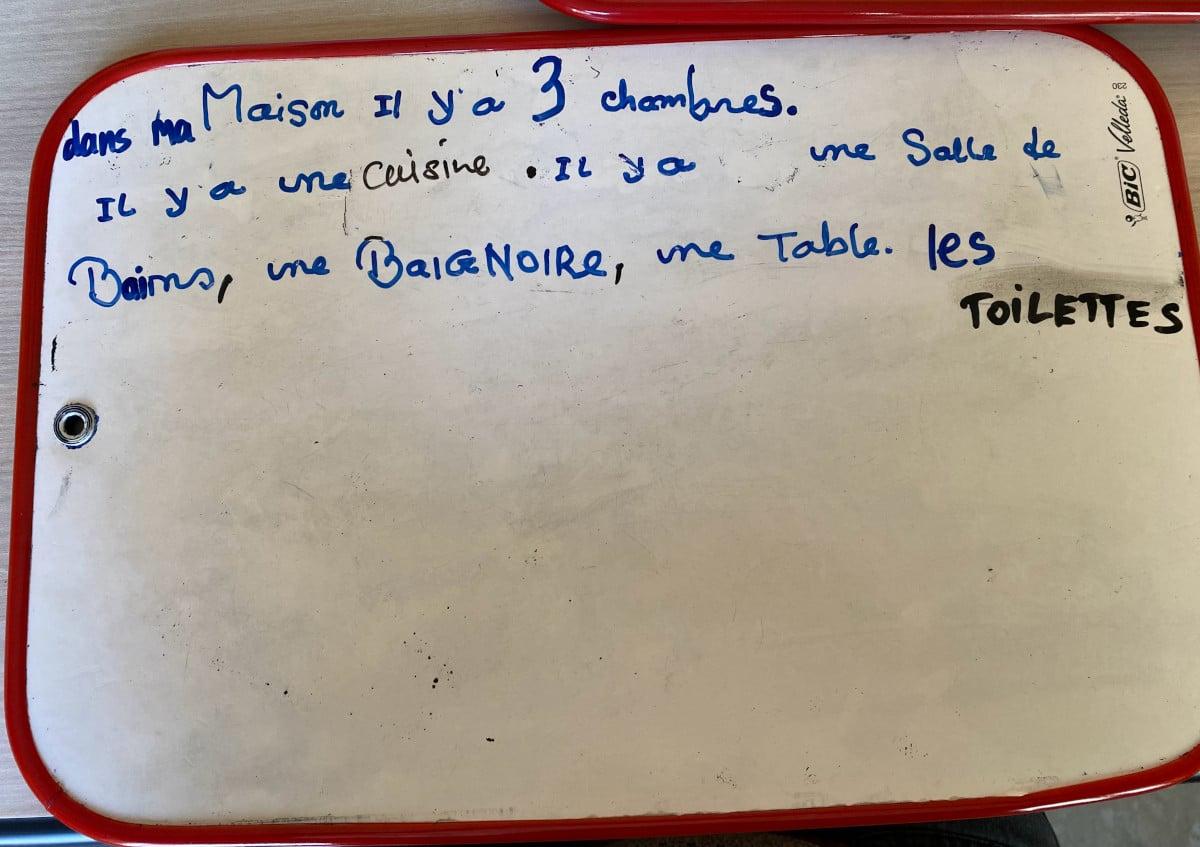 dans ma Maison Il y'a 3 chambres.
IL y'a une cuisine . IL y a une Salle de
Bains, une BaIGNOIRe, une Table. les
TOiLETTES
BIC Velleda